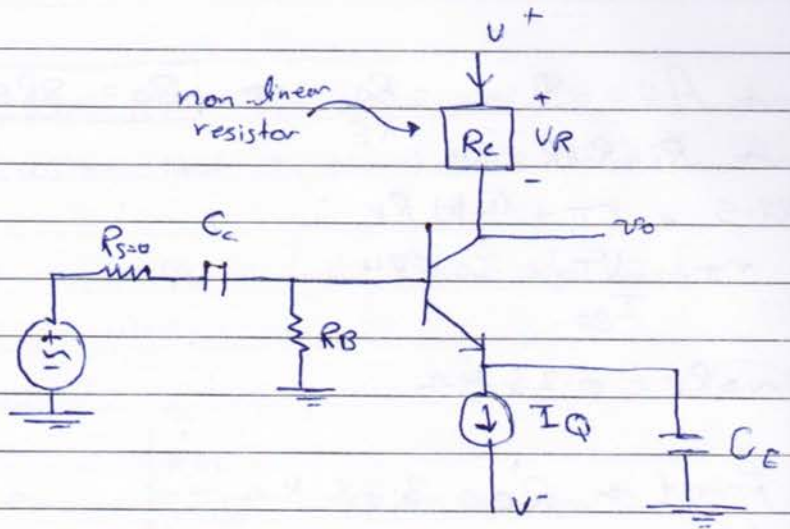 V +
non-linear
resistor
Rc
+
VR
-
Rs=0
Cc
vo
RB
+
-
IQ
CE
V-